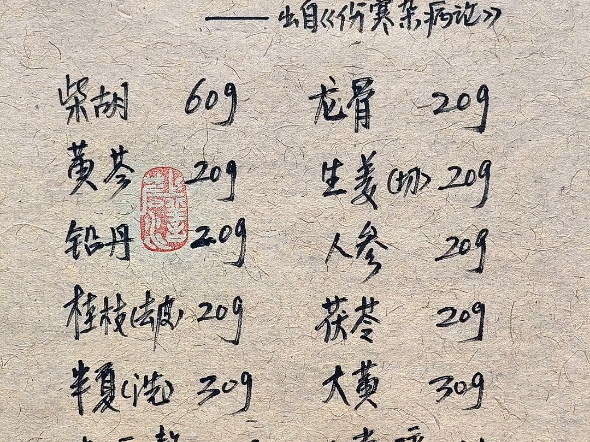 ——出自《伤寒杂病论》
柴胡 60g 龙骨 20g
黄芩 20g 生姜(切) 20g
铅丹 20g 人参 20g
桂枝(去皮) 20g 茯苓 20g
半夏(洗) 30g 大黄 30g